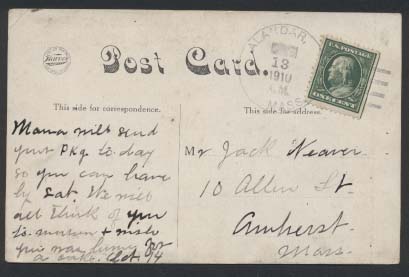 Harvey
Post Card.
ALANDAR,
13
1910
A.M.
MASS
U.S. POSTAGE
ONE CENT
This side for correspondence.
This side for address.
Mama will send
your Pkg. to-day
so you can have
by Sat. We will
all think of you
to-morrow + wish
you was home for
a cake. Oct 14
Mr Jack Weaver
10 Allen St.
Amherst
Mass.